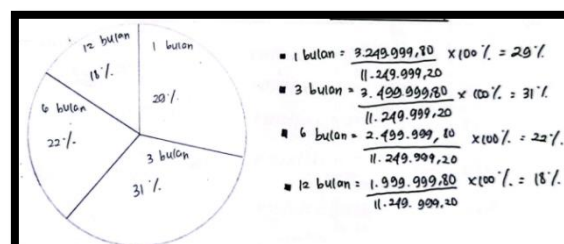 12 bulan
18%
1 bulan
29%
6 bulan
22%
3 bulan
31%
▪ 1 bulan = 3.249.999,80 / 11.249.999,20 x100% = 29%
▪ 3 bulan = 3.499.999,80 / 11.249.999,20 x 100% = 31%
▪ 6 bulan = 2.499.999,80 / 11.249.999,20 x100% = 22%
▪ 12 bulan = 1.999.999,80 / 11.249.999,20 x100% = 18%